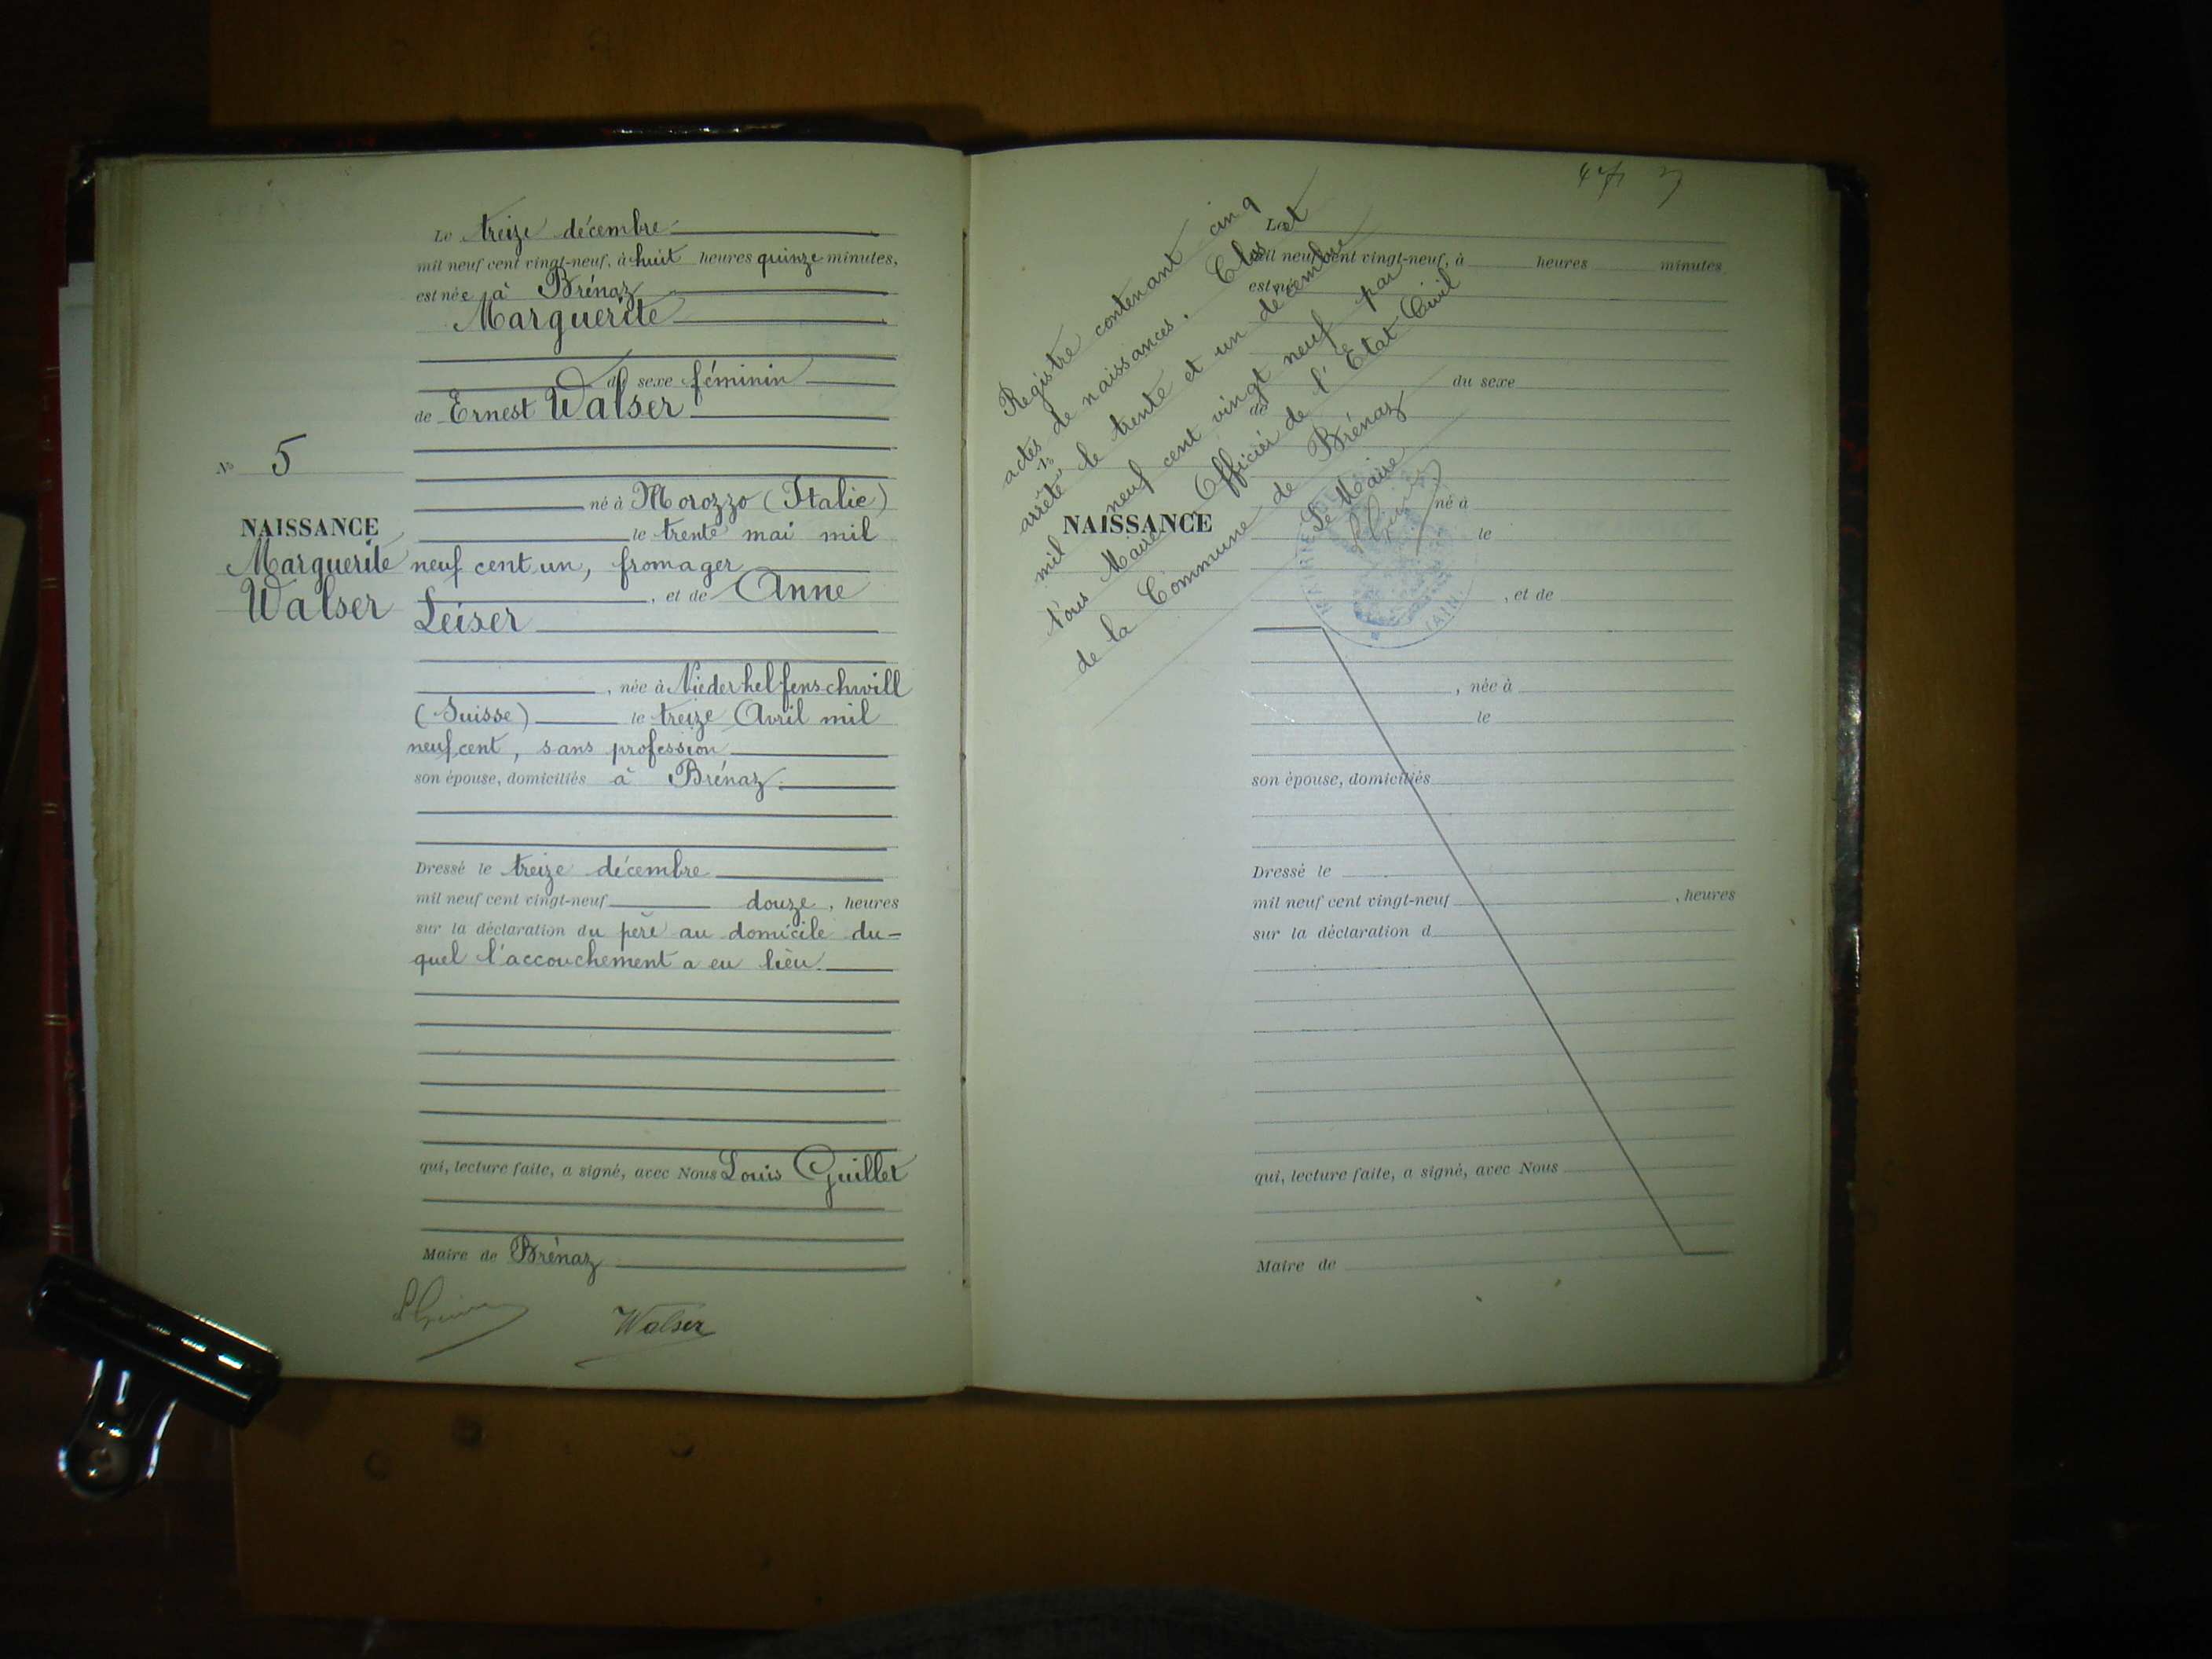 Le treize décembre
mil neuf cent vingt-neuf, à huit heures quinze minutes,
est née à Brénaz
Marguerite
du sexe féminin
de Ernest Walser
N° 5
né à Morozzo (Italie)
NAISSANCE
le trente mai mil
Marguerite
neuf cent un, fromager
Walser
, et de Anne
Leiser
, née à Niederhelfenschwill
(Suisse) le treize Avril mil
neuf cent, sans profession
son épouse, domiciliés à Brénaz.
Dressé le treize décembre
mil neuf cent vingt-neuf douze, heures
sur la déclaration du père au domicile du-
quel l'accouchement a eu lieu.
qui, lecture faite, a signé, avec Nous Louis Guillet
Maire de Brénaz
Walser
Registre contenant cinq
actes de naissances. Clos et
arrêté le trente et un décembre
mil neuf cent vingt neuf par
Nous Maire Officier de l'État Civil
de la Commune de Brénaz
Le Maire
Le
mil neuf cent vingt-neuf, à heures minutes
est né
du sexe
de
né à
NAISSANCE
le
, et de
, née à
le
son épouse, domiciliés
Dressé le
mil neuf cent vingt-neuf , heures
sur la déclaration d
qui, lecture faite, a signé, avec Nous
Maire de